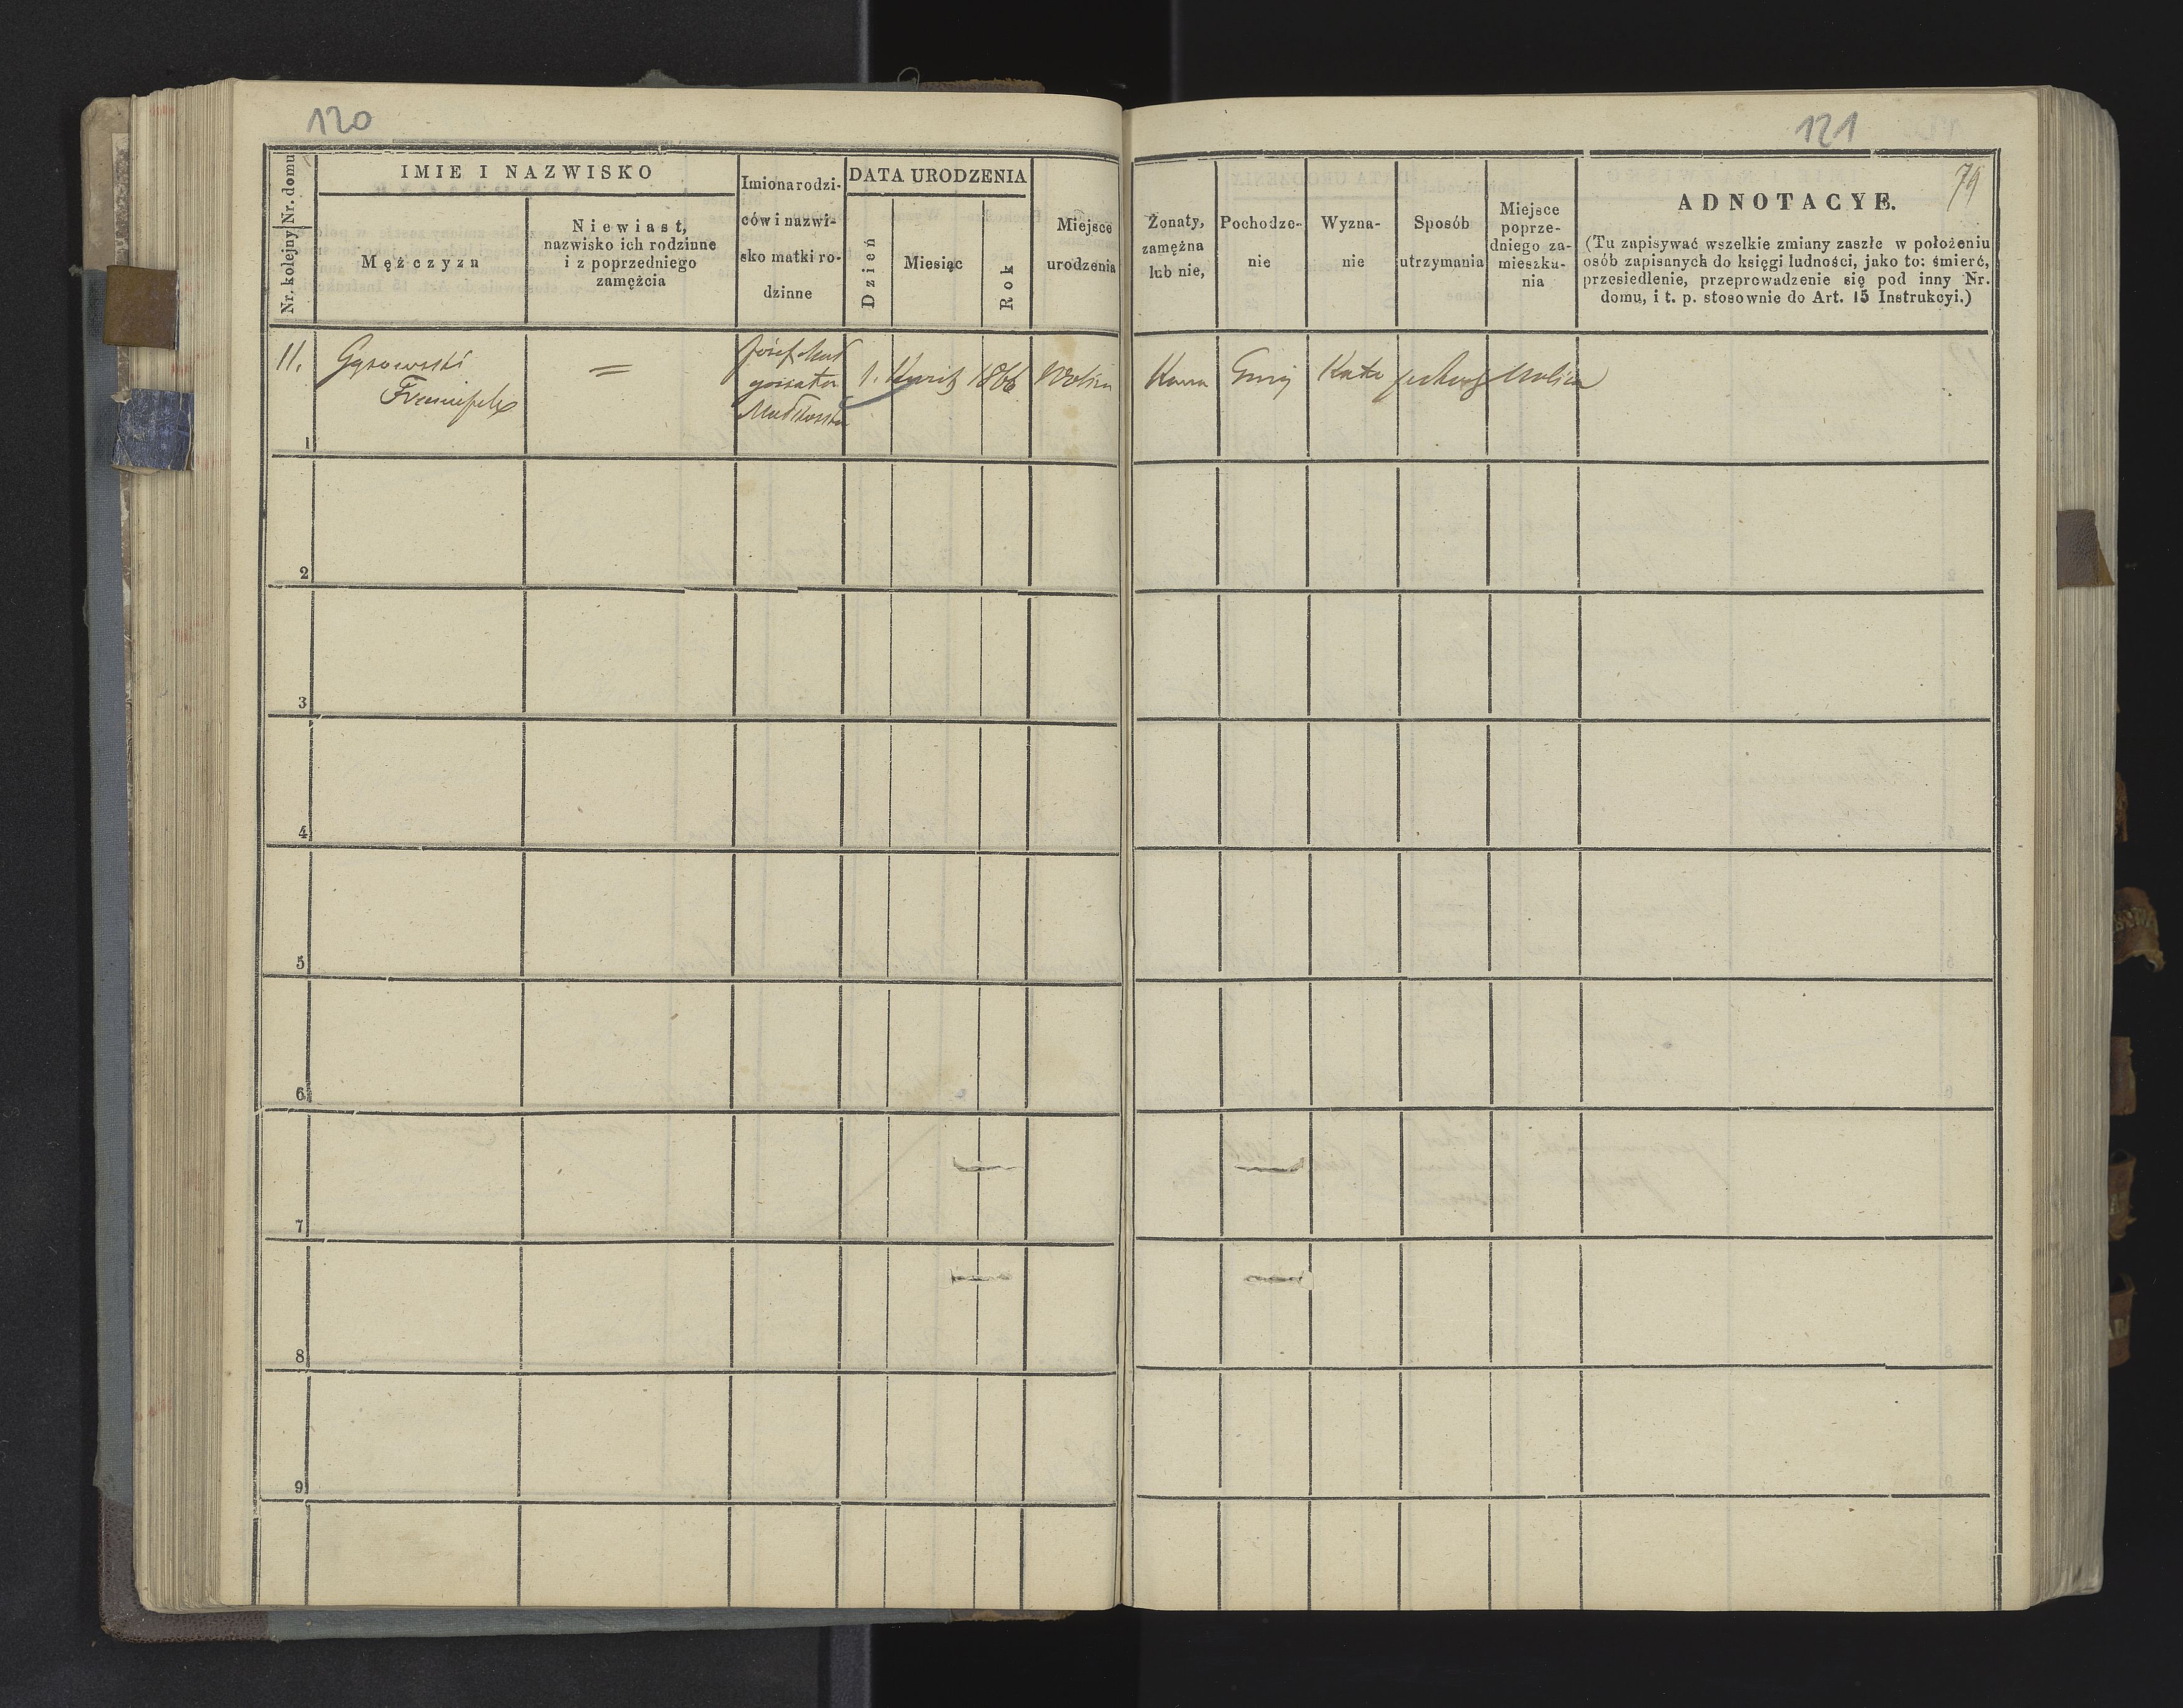 120
Nr. domu
Nr. kolejny
IMIE I NAZWISKO
Mężczyzn
Niewiast,
nazwisko ich rodzinne
i z poprzedniego
zamężcia
Imiona rodzi-
ców i nazwi-
sko matki ro-
dzinne
DATA URODZENIA
Dzień
Miesiąc
Rok
Miejsce
urodzenia
11.
=
Józef
1.
1866
1
2
3
4
5
6
7
8
9
121
79
Żonaty,
zamężna
lub nie,
Pochodze-
nie
Wyzna-
nie
Sposób
utrzymania
Miejsce
poprze-
dniego za-
mieszka-
nia
ADNOTACYE.
(Tu zapisywać wszelkie zmiany zaszłe w położeniu
osób zapisanych do księgi ludności, jako to: śmierć,
przesiedlenie, przeprowadzenie się pod inny Nr.
domu, i t. p. stosownie do Art. 15 Instrukcyi.)